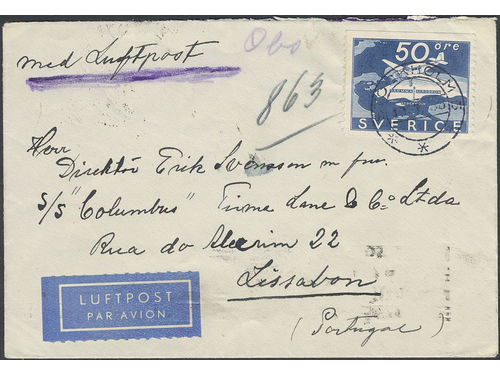 med Luftpost
Obo
863
50 öre
SVERIGE
Herr
Direktör Erik Svensson m fru.
S/S "Columbus" Firma Lane & Co Ltda
Rua do Alecrim 22
Lissabon
(Portugal)
LUFTPOST
PAR AVION